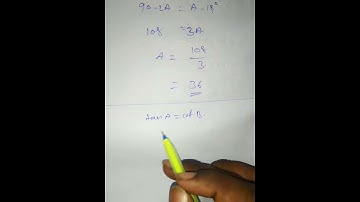 90-2A = A-18°
108 = 3A
A = 108/3
= 36
tan A = cot B.